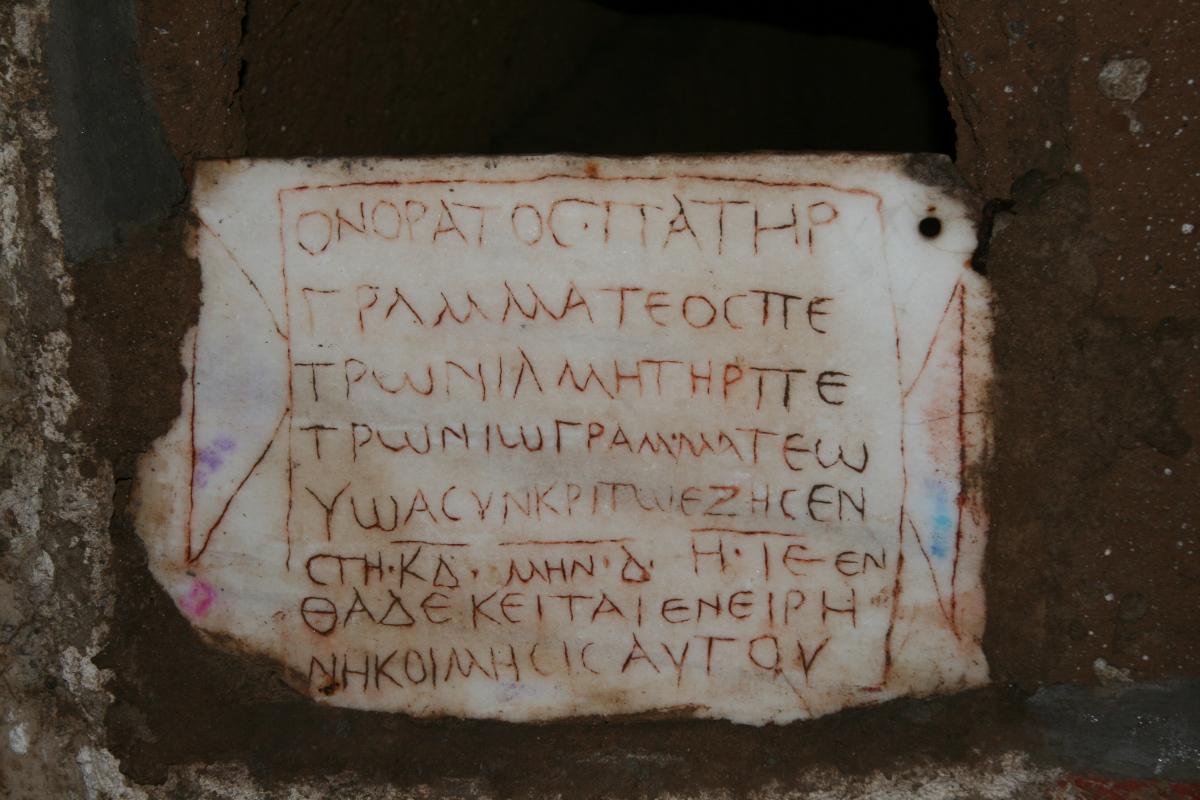 ΟΝΟΡΑΤΟϹ·ΠΑΤΗΡ
ΓΡΑΜΜΑΤΕΟϹΠΕ
ΤΡΩΝΙΑΜΗΤΗΡΠΕ
ΤΡΩΝΙΩΓΡΑΜΜΑΤΕΩ
ΥΩΑϹΥΝΚΡΙΤΩΕΖΗϹΕΝ
ϹΤΗ·ΚΔ·ΜΗΝ·Δ·Η·ΙΕ·ΕΝ
ΘΑΔΕΚΕΙΤΑΙΕΝΕΙΡΗ
ΝΗΚΟΙΜΗϹΙϹΑΥΤΟΥ